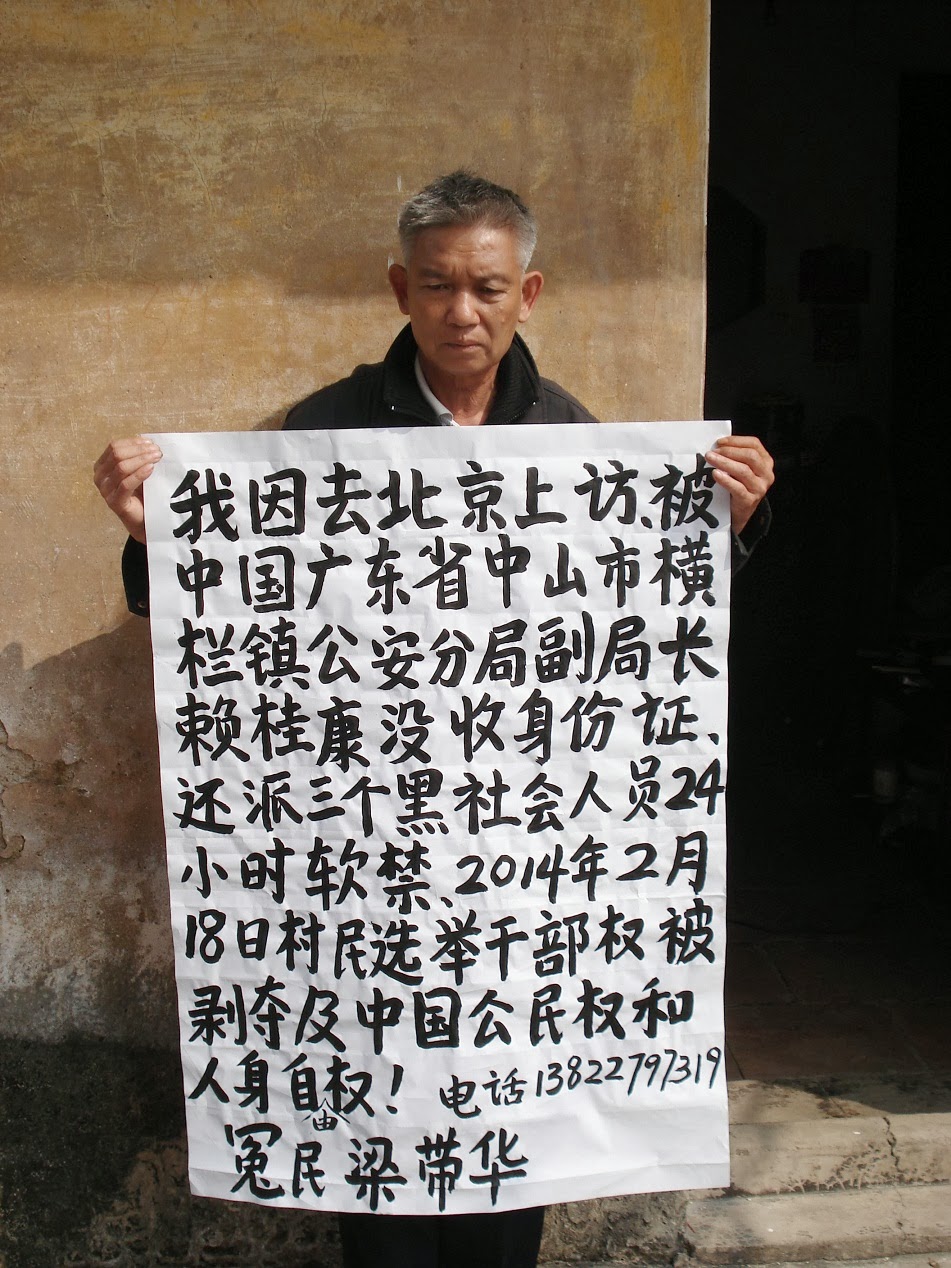 我因去北京上访、被
中国广东省中山市横
栏镇公安分局副局长
赖桂康没收身份证、
还派三个黑社会人员24
小时软禁、2014年2月
18日村民选举干部权被
剥夺及中国公民权和
人身自由权！ 电话13822797319
冤民梁带华